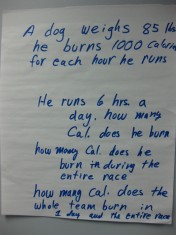 A dog weighs 85 lbs
he burns 1000 Calories
for each hour he runs
He runs 6 hrs. a
day. how many
Cal. does he burn
how many Cal. does he
burn in during the
entire race
how many Cal. does the
whole team burn in
1 day and the entire race